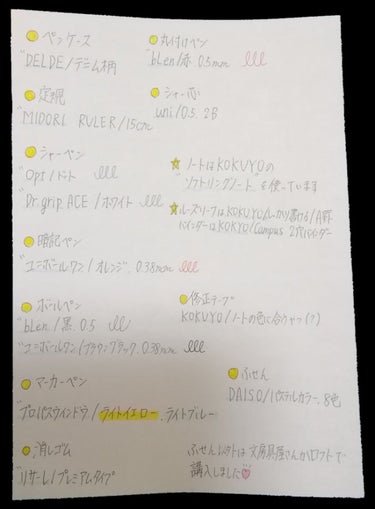 ペンケース
DELDE/デニム柄
定規
MIDORI RULER/15cm
シャーペン
Opt/ドット
Dr.grip ACE/ホワイト
暗記ペン
ユニボールワン/オレンジ. 0.38mm
ボールペン
bLen/黒. 0.5
ユニボールワン/ブラウンブラック. 0.38mm
マーカーペン
プロパスウインドウ/ライトイエロー. ライトブルー
消しゴム
リサーレ/プレミアムタイプ
丸付けペン
bLen/赤. 0.5mm
シャー芯
uni/0.5. 2B
ノートはKOKUYOの
"ソフトリングノート"を使っています
ルーズリーフはKOKUYO/しっかり書ける/A罫
バインダーはKOKUYO/Campus 2穴バインダー
修正テープ
KOKUYO/ノートの色に合うやつ(?)
ふせん
DAISO/パステルカラー. 8色
ふせん以外は文房具屋さんかロフトで
購入しました